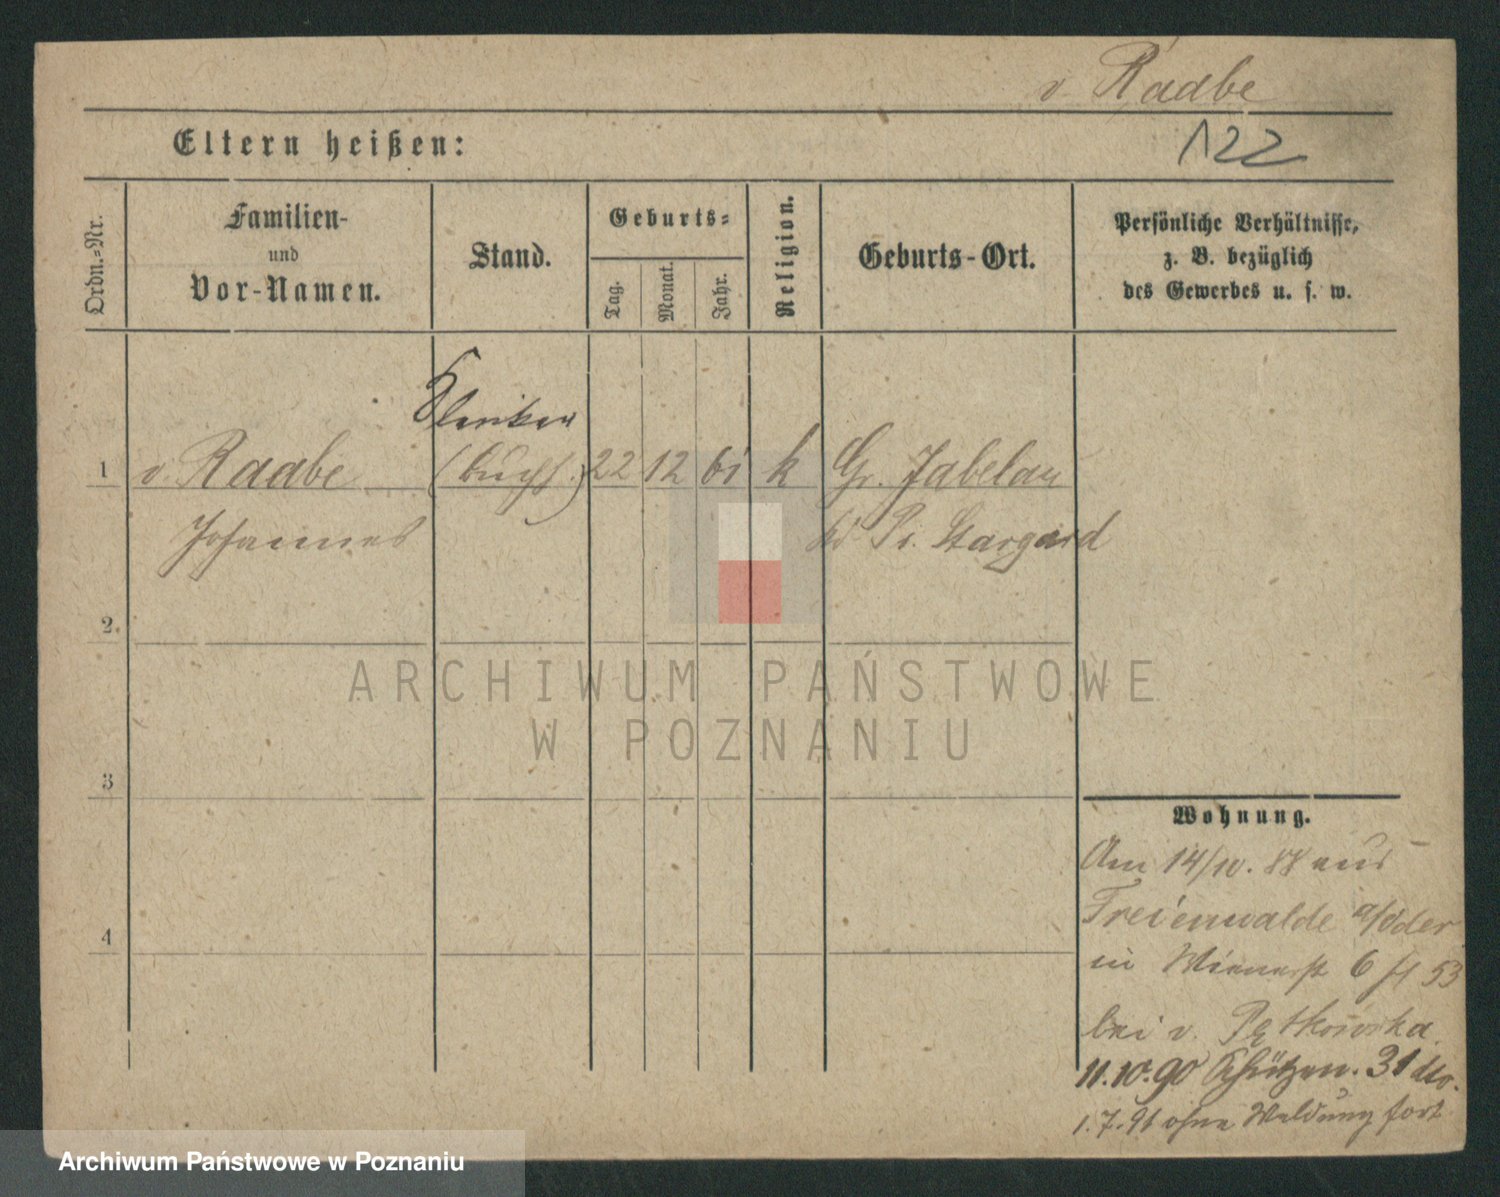 v. Raabe
Eltern heißen:
122
Ordn.-Nr.
Familien-
und
Vor-Namen.
Stand.
Geburts-
Tag.
Monat.
Jahr.
Religion.
Geburts-Ort.
Persönliche Verhältnisse,
z. B. bezüglich
des Gewerbes u. s. w.
1
v. Raabe
22 12 61 k Gr. Jabelau
Johannes
Pr. Stargard
2.
3
4
ARCHIWUM PAŃSTWOWE
W POZNANIU
Wohnung.
Am 14/10. 88 aus
Freienwalde a/Oder
in Wienerst 6 53
bei v. Pętkowska
11.10.90 Schützen. 31 dto.
1.7.91 ohne Meldung fort
Archiwum Państwowe w Poznaniu